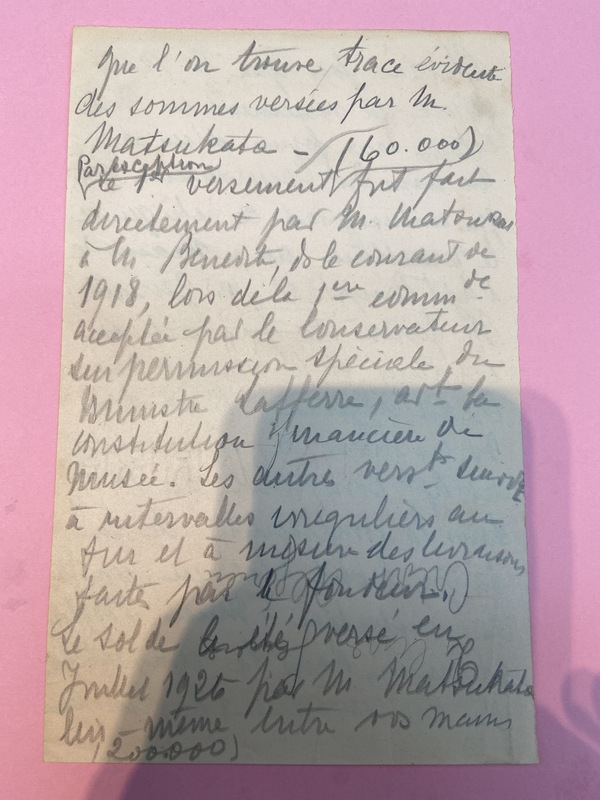 que l'on trouve trace évidente
des sommes versées par M.
Matsukata – (60.000)
Par exception
le 1er versement fut fait
directement par M. Matsukat
à M. Benedite, ds le courant de
1918, lors de la 1ère commde
acceptée par le Conservateur
sur permission spéciale du
Ministre Lafferre, avt la
constitution financière du
Musée. Les autres versts
à intervalles irréguliers au
fur et à mesure des livraisons
faites par le fondeur.
Le solde a été versé en
Juillet 1926 par M. Matsukata
lui-même entre vos mains
(200.000)